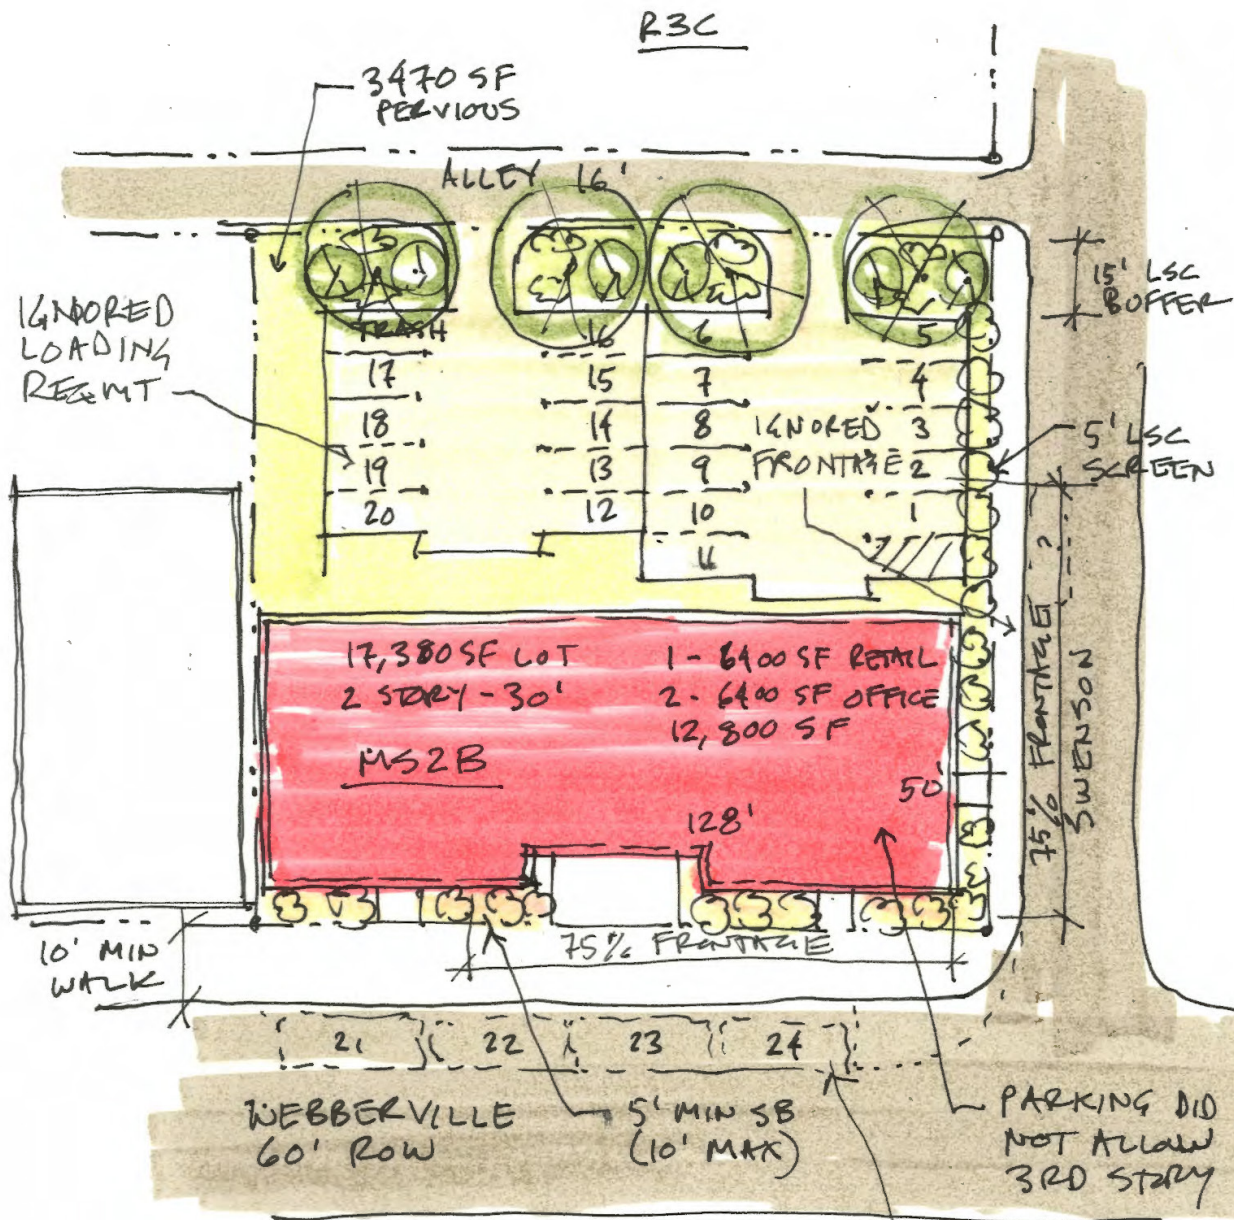 R3C
3470 SF
PERVIOUS
ALLEY 16'
15' LSC
BUFFER
IGNORED
LOADING
REQMT
TRASH
16
6
5
17
15
7
4
18
14
8
3
19
13
9
2
20
12
10
1
11
IGNORED
FRONTAGE
5' LSC
SCREEN
17,380 SF LOT
2 STORY - 30'
MS2B
1 - 6400 SF RETAIL
2 - 6400 SF OFFICE
12,800 SF
50'
128'
75% FRONTAGE ?
SWENSON
75% FRONTAGE
10' MIN
WALK
21
22
23
24
WEBBERVILLE
60' ROW
5' MIN SB
(10' MAX)
PARKING DID
NOT ALLOW
3RD STORY